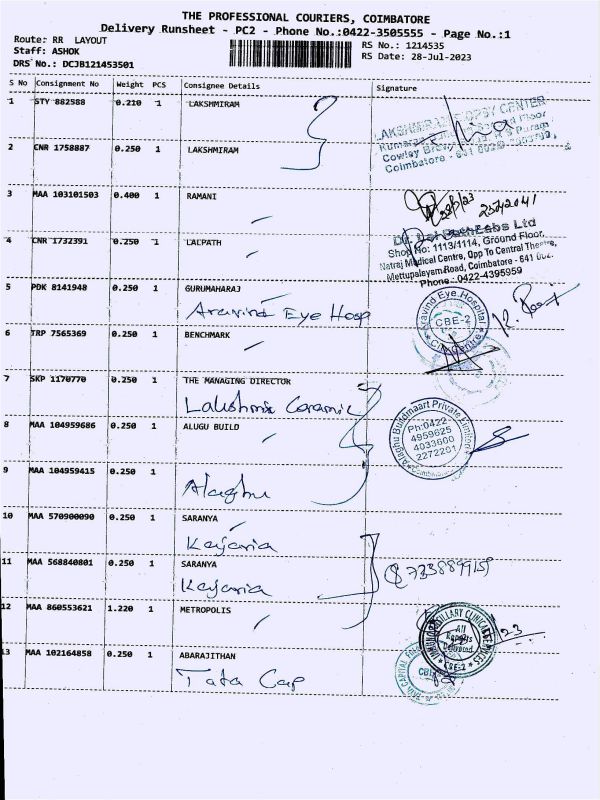 THE PROFESSIONAL COURIERS, COIMBATORE
Delivery Runsheet - PC2 - Phone No.:0422-3505555 - Page No.:1
Route: RR LAYOUT
Staff: ASHOK
DRS No.: DCJB121453501
RS No.: 1214535
RS Date: 28-Jul-2023
S No Consignment No Weight PCS Consignee Details Signature
1 STY 882588 0.210 1 LAKSHMIRAM
2 CNR 1758887 0.250 1 LAKSHMIRAM
Coimbatore - 641
3 MAA 103101503 0.400 1 RAMANI
4 CNR 1732391 0.250 1 LALPATH
Shop No: 1113/1114, Ground Floor,
Natraj Medical Centre, Opp To Central Theatre,
Mettupalayam Road, Coimbatore - 641 002.
Phone : 0422-4395959
5 PDK 8141948 0.250 1 GURUMAHARAJ
Aravind Eye Hosp
Aravind Eye Hospital
CBE-2
6 TRP 7565369 0.250 1 BENCHMARK
7 SKP 1170770 0.250 1 THE MANAGING DIRECTOR
Lakshmi Ceramic
8 MAA 104959686 0.250 1 ALUGU BUILD
Ph:0422-
4959625
4033600
2272201
9 MAA 104959415 0.250 1
Alaghu
10 MAA 570900090 0.250 1 SARANYA
Kajaria
11 MAA 568840801 0.250 1 SARANYA
Kajaria
7338899159
12 MAA 860553621 1.220 1 METROPOLIS
All
Results
Delivered
CBE-2
13 MAA 102164858 0.250 1 ABARAJITHAN
Tata Cap